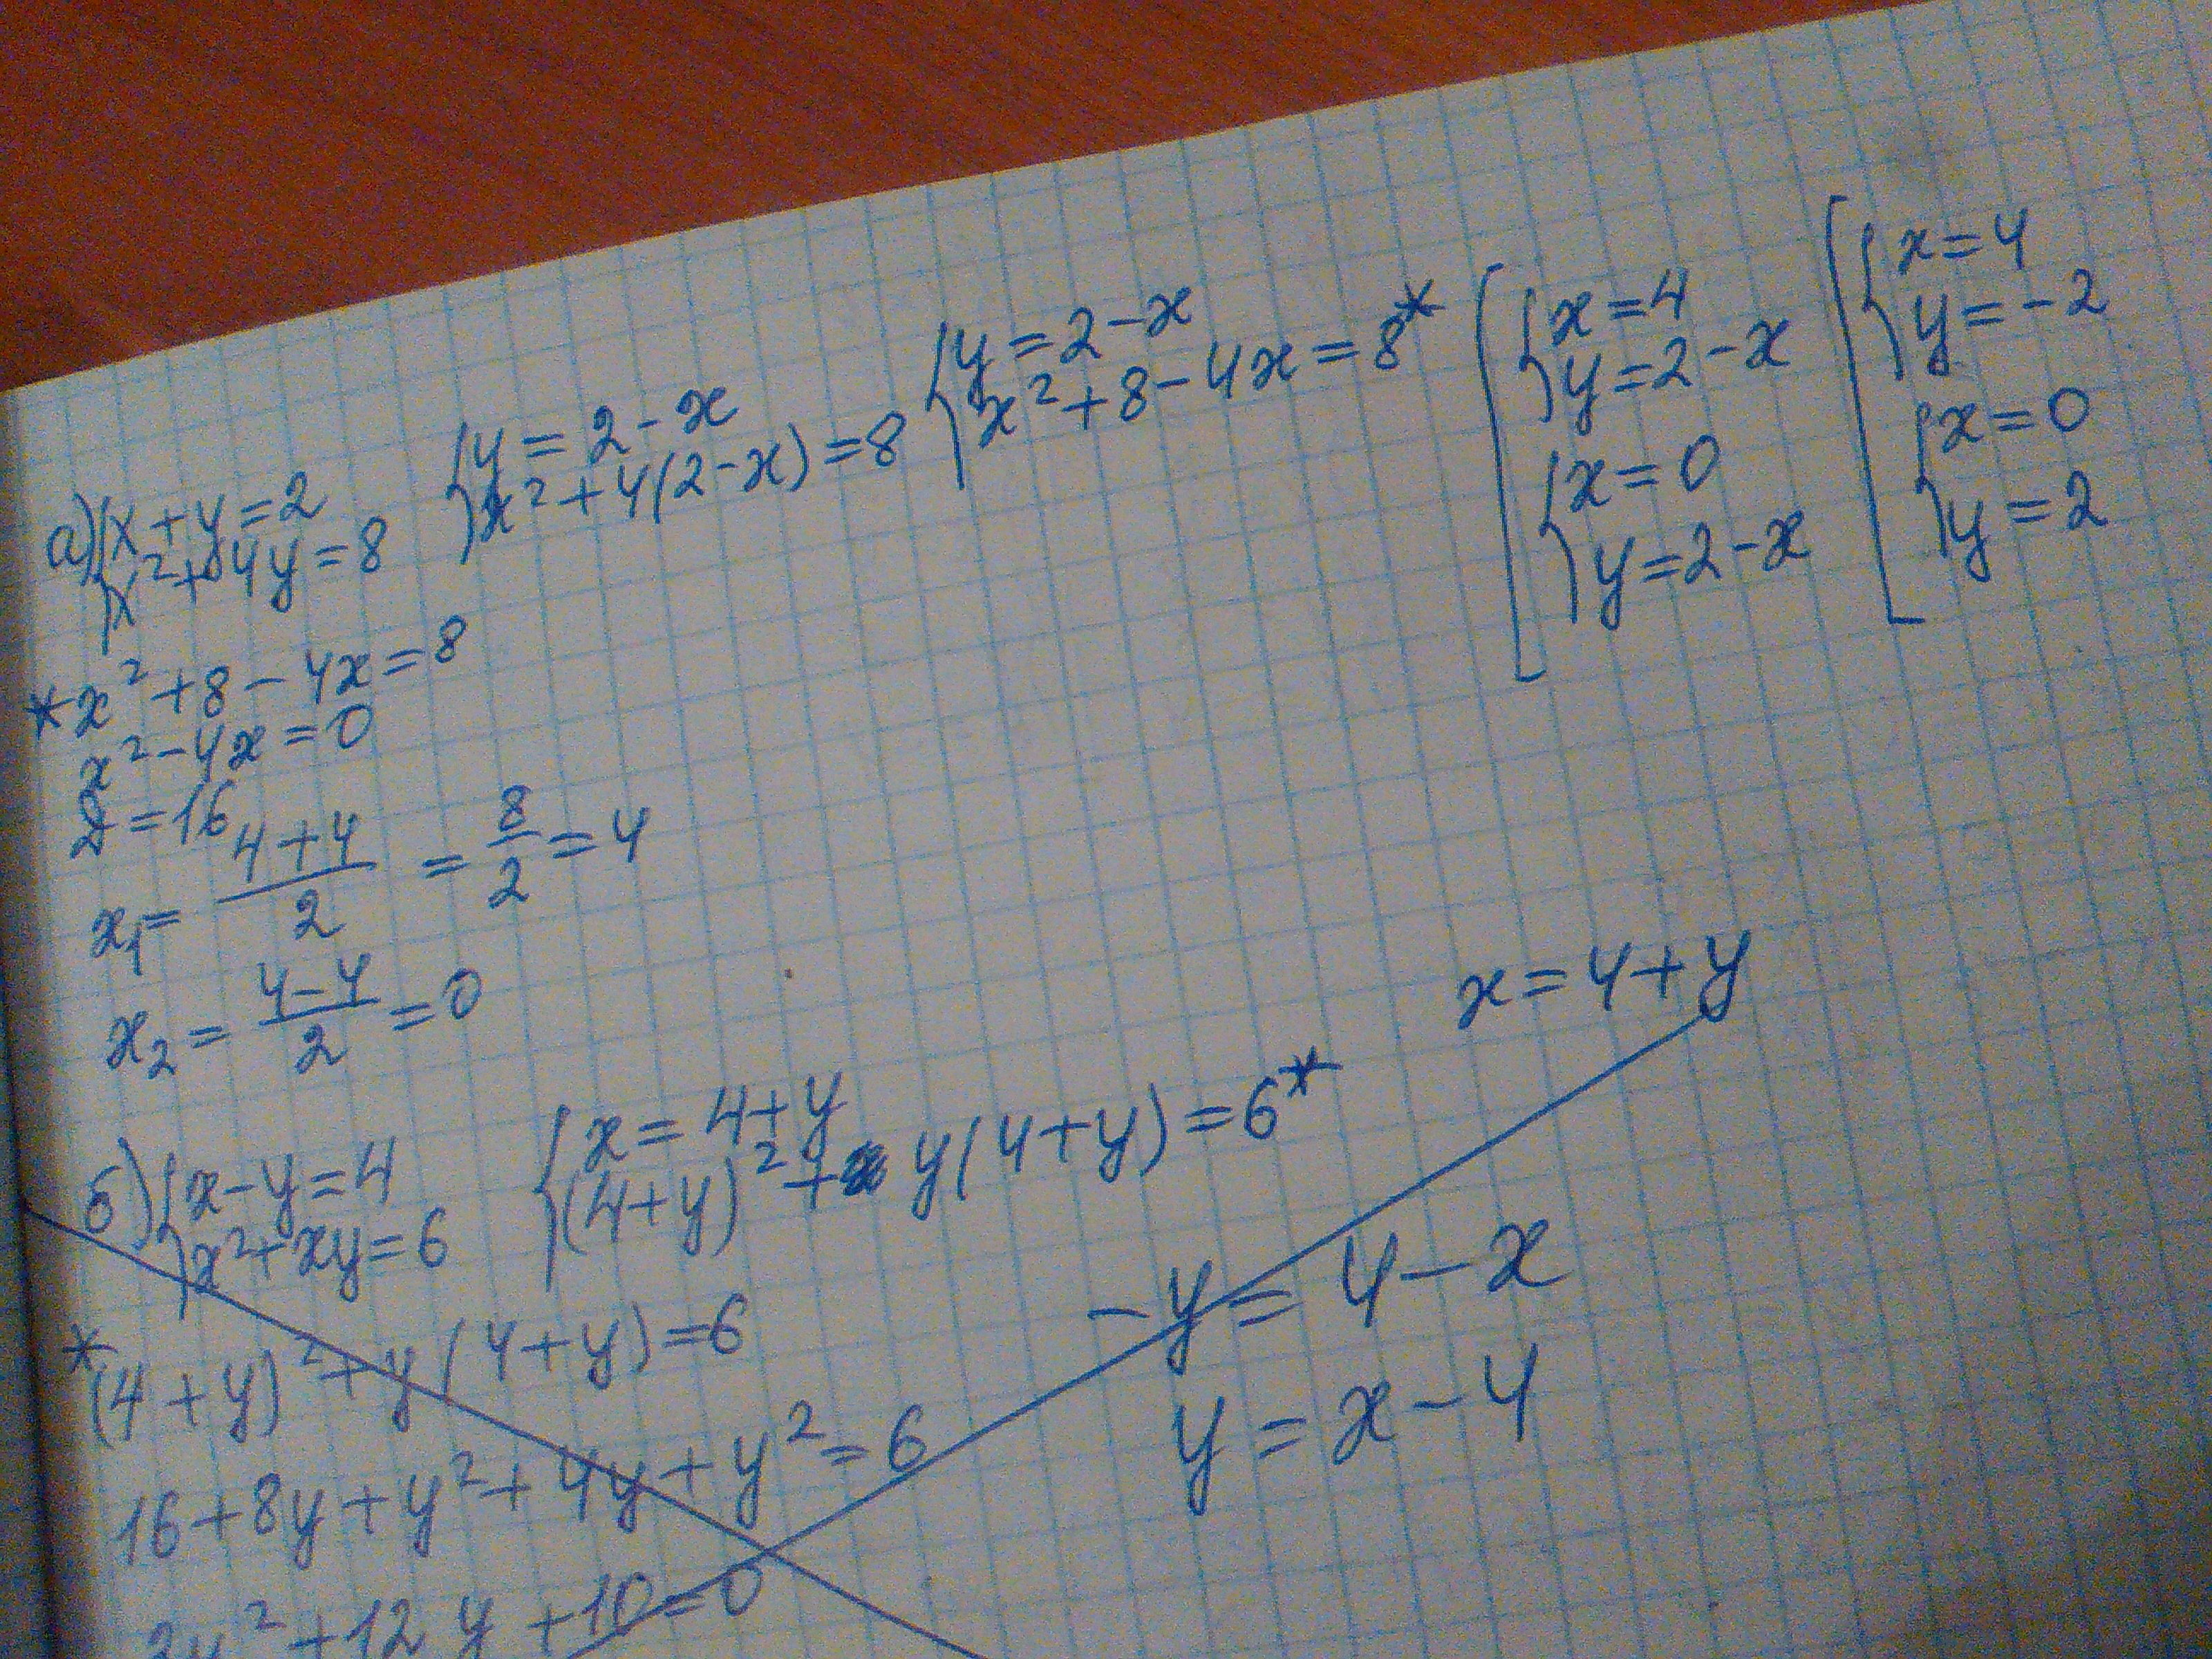 а) { x + y = 2
x² + 4y = 8
{ y = 2 - x
x² + 4(2 - x) = 8
{ y = 2 - x
x² + 8 - 4x = 8*
[ { x = 4
y = 2 - x
{ x = 0
y = 2 - x
[ { x = 4
y = -2
{ x = 0
y = 2
* x² + 8 - 4x = 8
x² - 4x = 0
D = 16
x₁ = (4 + 4)/2 = 8/2 = 4
x₂ = (4 - 4)/2 = 0
x = 4 + y
б) { x - y = 4
x² + xy = 6
{ x = 4 + y
(4 + y)² + y(4 + y) = 6*
* (4 + y)² + y(4 + y) = 6
- y = 4 - x
y = x - 4
16 + 8y + y² + 4y + y² = 6
2y² + 12y + 10 = 0